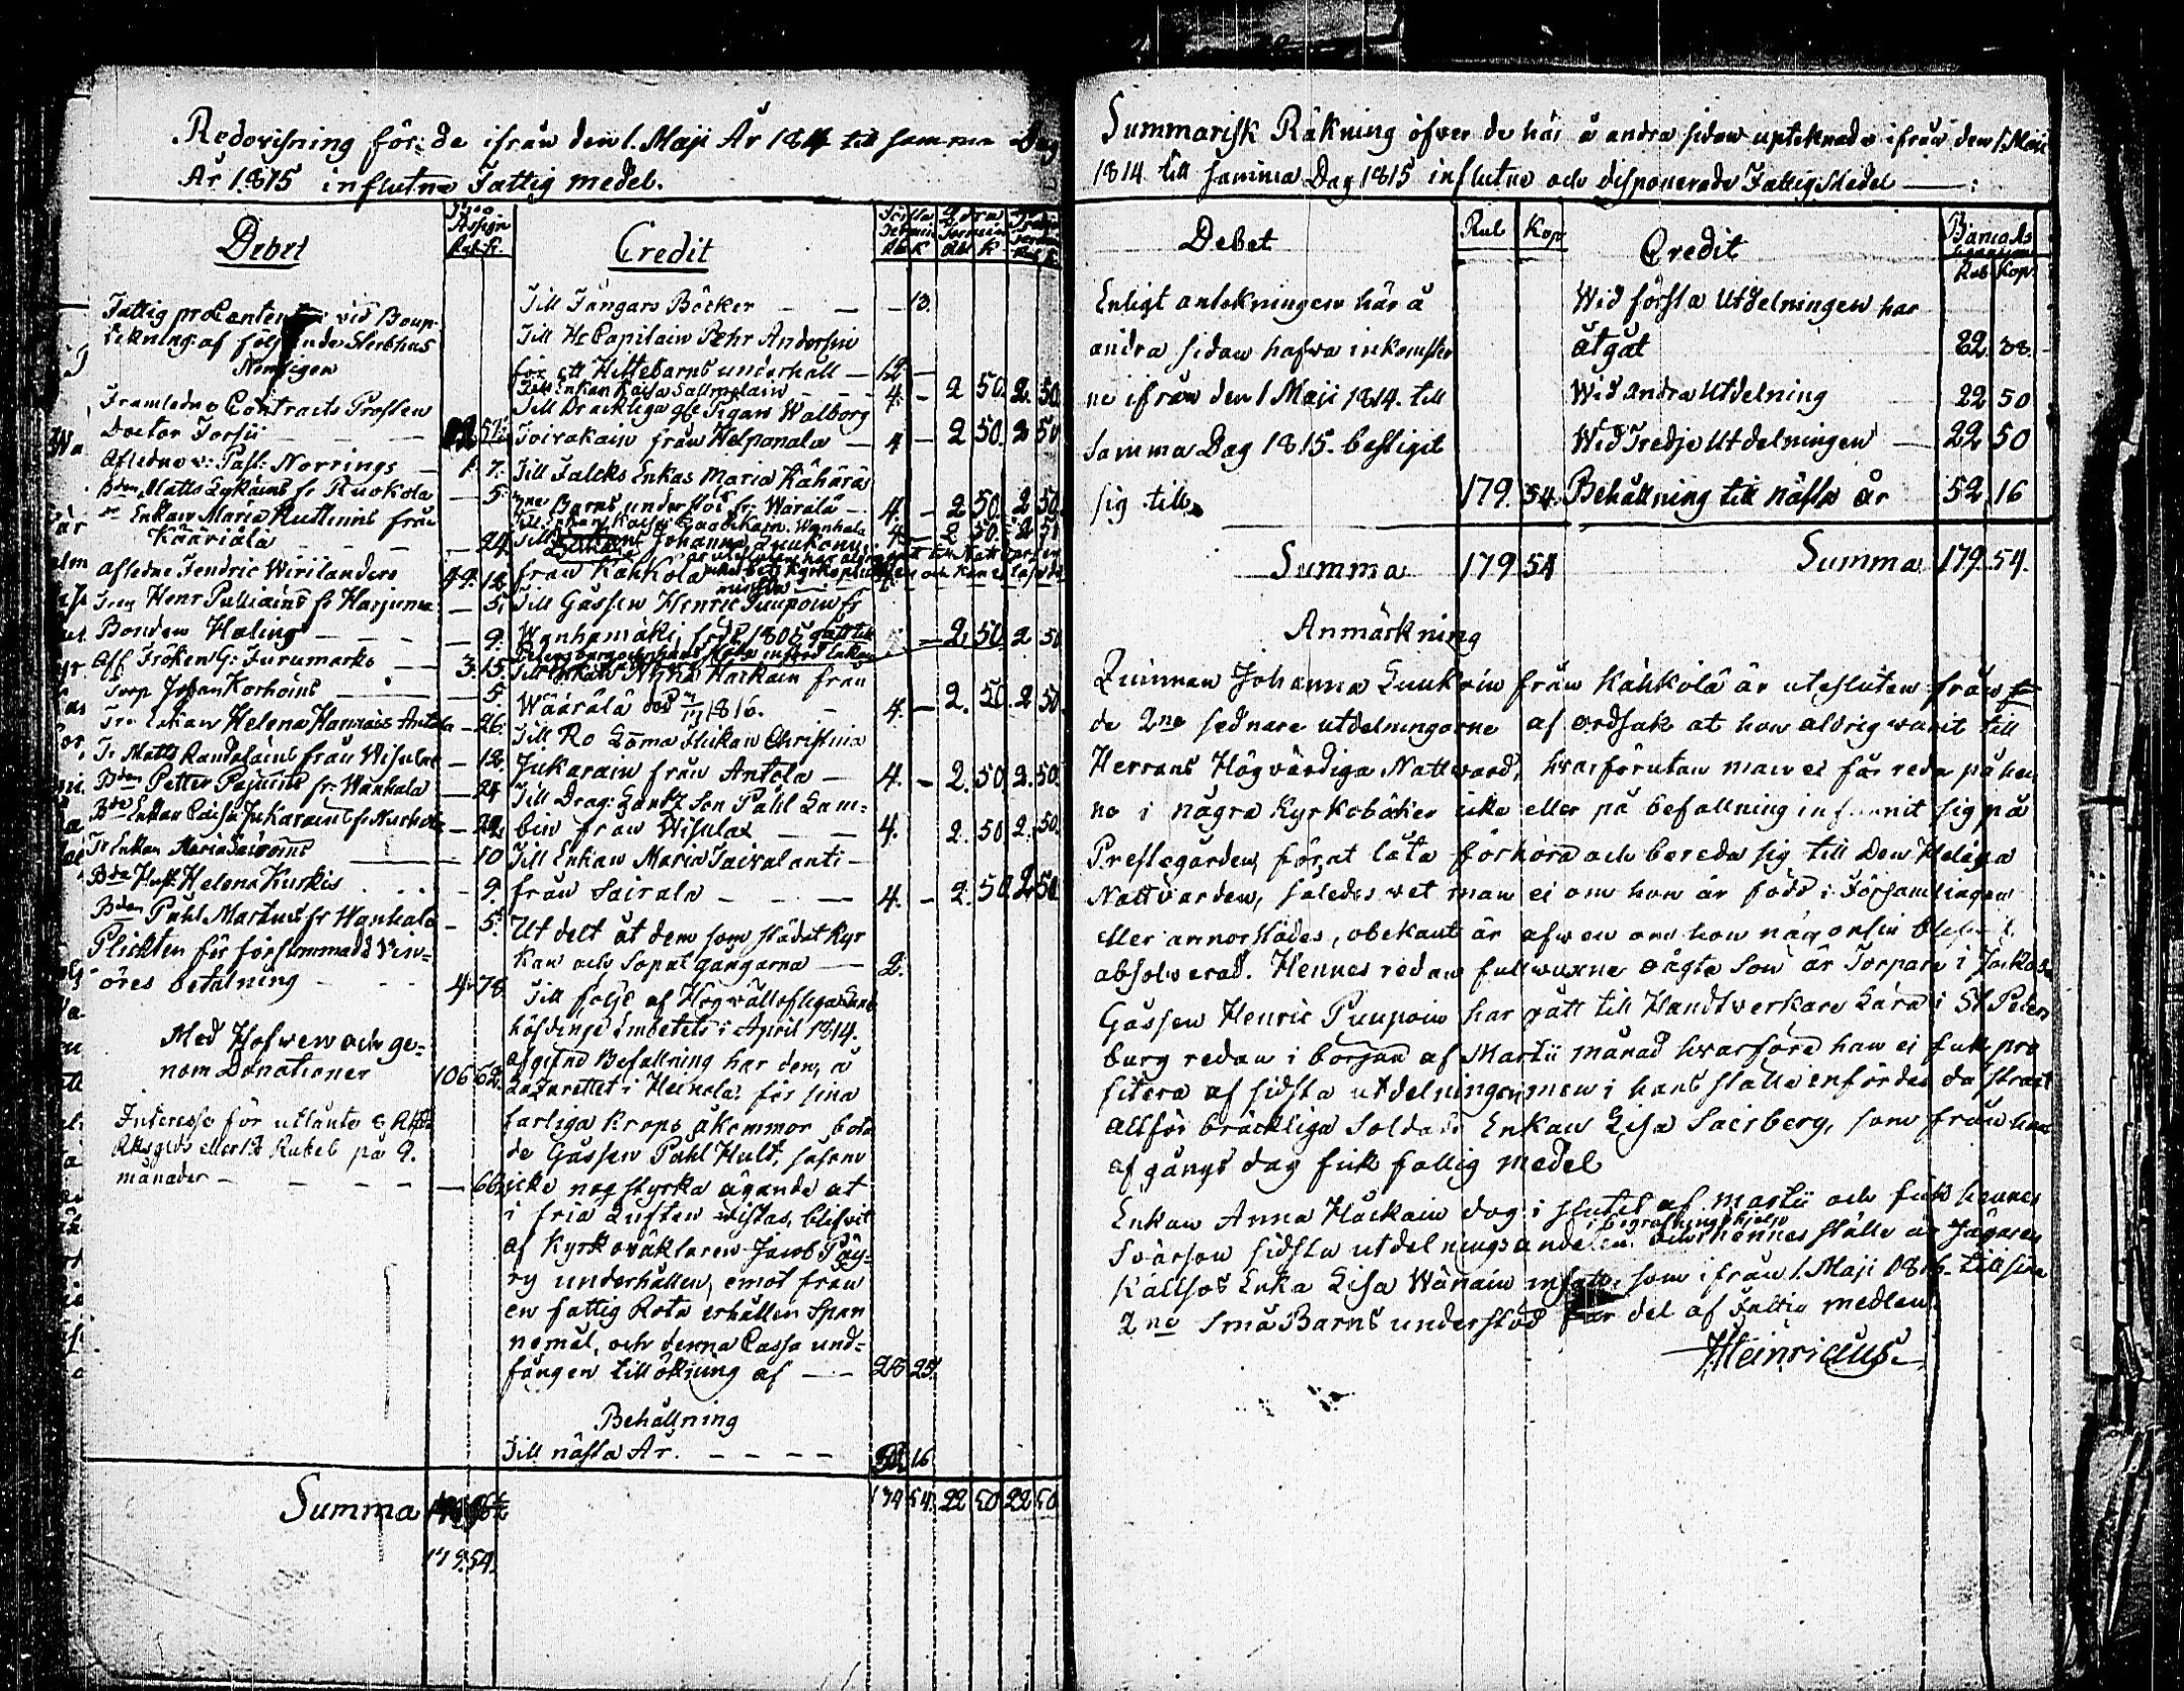 Redovisning för de ifrån den 1. Maji År 1814 till samma Dag
År 1815 influtne Fattig medel.
Debet
Banco Assign
Rub. K.
Fattig proCenten vid Boup
tekning af följande Sterbhus
Nemligen
Framledne Contracts Prosten
Doctor Forsii 57
Afledne v: Past: Norrings 1. 7.
Bden Matts Sykäins fr Ruokola 5.
dr Enkan Maria Ruttinins från
Kääriälä 24.
Afledne Fendric Wirilanders 44. 12
Henr Pulliains fr Harjuma 5.
Bonden Häling 9.
Aff Fröken G: Furumarks 3. 15.
Torp Johan Korhoins 5.
Enkan Helena Hannois Antola 26.
Tr Matts Randalains från Wisulax 12.
Bden Petter Pajuins fr: Wanhala 24
Bde Enkan Caisa Jukarains fr Nurhola
Tr Enkan Maria 10
Bde Hust: Helena Kurkis 9.
Bden Påhl Martins fr Wanhala 5.
Plickten för försummad Vin-
öres betalning 4. 78
Med Hofwen och ge-
nom Donationer 106 62
Interesse för utlånte 8
Rksglds eller 12 Rubel på 9.
månader 66
Summa
179.54.
Credit
Första Termin
Rub K
Andra Termin
Rub K
Tredje Termin
Rub K
Till Fångars Böcker 13.
Till Hr Capitain Pehr Andersin
för ett Hittebarns underhåll 12 –
Till Enkan Kaisa Sallmelain 4. – 2 50. 2. 50.
Till Bräckliga gle Pigan Walborg
Toivakain från Helponala 4 – 2 50. 2 50
Till Falcks Enkas Maria Kähäräs
2ne Barns understöd fr: Wärälä 4. – 2 50. 2 50.
Till Enkan Kaisa Wanhala 4 – 2 50. 2 50
Till Johanna Luukonen
från Kähkölä
Till Gåssen Henric Puupoin fr
Wanhamäki, född 1805 gått till – 2. 50. 2 50
Till Enkan Anna Häckäin från
Wäärälä död 1816. 4. – 2. 50. 2 50
Till Ro Lama Flickan Christina
Jukarain från Antola 4. – 2. 50 2. 50.
Till Drag: Lantz Son Påhl Lam-
bin från Wisulax 4. 2. 50 2. 50.
Till Enkan Maria Tairalanti
från Sairala 4. – 2. 50. 2. 50
Utdelt åt dem som städat Kyr
kan och Sopat gångarna 2.
Till följe af Högvällofliga Lands
höfdinge Embetets i April 1814.
afgifne Befallning har den, å
Lazarettet i Heinola, för sina
farliga krops åkommor bota
de Gåssen Påhl Hult, såsom
icke nog styrka ägande at
i fria Luften vistas, blifvit
af Kyrkoväktaren Jacob Päy-
ry underhållen, emot från
en fattig Rota erhållen Span
nemål, och denna Cassa und-
fången tillökning af 28 25.
Behållning
Till nästa År. 52. 16
179 54. 22 50 22 50
Summarisk Räkning öfver de här å andra sidan uptecknade ifrån den 1. Maji
1814 till samma Dag 1815 influtne och disponerade Fattig Medel :
Debet Rub Kop Credit Banco As
signationer
Rub Kop.
Enligt antekningen här å
andra sidan hafva inkomster
ne ifrån den 1 Maji 1814. till
samma Dag 1815. bestigit
sig till 179. 54.
Wid första Utdelningen har
åtgåt 82 38.
Wid andra Utdelning 22 50
Wid Tredje Utdelningen 22 50
Behållning till nästa år 52. 16
Summa 179 54 Summa 179. 54.
Anmärkning
Quinnan Johanna Luukoin från Kähkölä är utesluten från
de 2ne sednare utdelningarne af ordsak at hon aldrig varit till
Herrans Högvärdiga Nattvard, hvarförutan man ei får reda på hen
ne i några Kyrkoböcker icke eller på befallning infunnit sig på
Prestegården, för at låta förhöra och bereda sig till Den Heliga
Nattvarden, således vet man ei om hon är född i Församlingen
eller annorstädes, obekant är äfwen om hon någonsin blifvit
absolverad. Hennes redan fullvuxne oägta Son är Torpare i
Gåssen Henric Puupoin har gått till Handtverkare Lära i St Peters
burg redan i början af Martii månad hvarföre han ei fick pro
fitera af sidsta utdelningen, men i hans ställe infördes da straxt
allför bräckliga Soldats Enkan Lisa Sairberg, som från hans
afgångs dag fick fattig medel
Enkan Anna Häckain dog i slutet af Martii och fick hennes
Svärson sidsta utdelnings andelen i begrafningshjelp och i hennes ställe är Jägaren
Källsos Enka Lisa Wänäin insatt, som ifrån 1. Maji 1816. till sina
2ne små Barns understöd får del af Fattig medlen.
HHeinricius